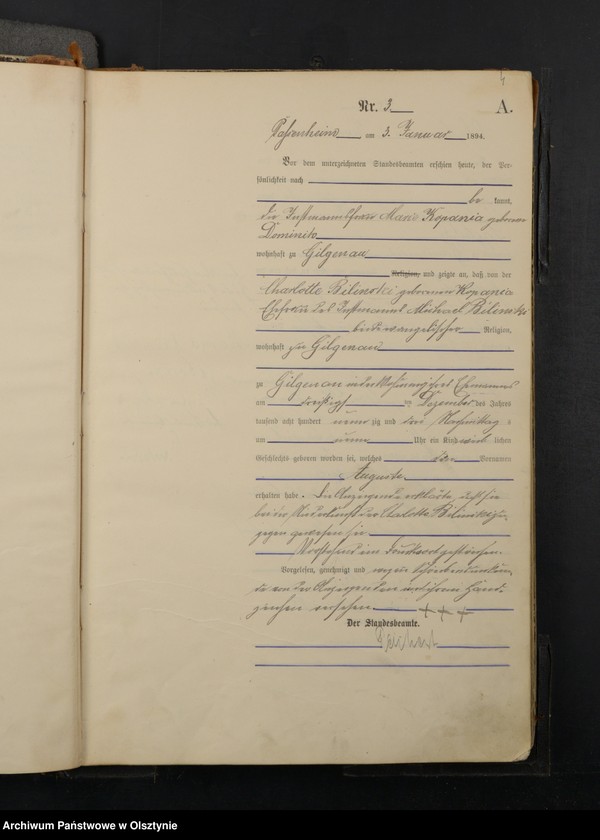 4
Nr. 3 A.
Passenheim am 3. Januar 1894.
Vor dem unterzeichneten Standesbeamten erschien heute, der Per-
sönlichkeit nach
be kannt,
die Instmannsfrau Marie Kopania geborene
Dominika
wohnhaft zu Gilgenau
Religion, und zeigte an, daß von der
Charlotte Bilinski geborenen Kopania
Ehefrau des Instmanns Michael Bilinski
beide evangelischer Religion,
wohnhaft zu Gilgenau
zu Gilgenau in der Wohnung ihres Ehemannes
am dreißigsten Dezember des Jahres
tausend acht hundert neun zig und drei Nachmittags
um neun Uhr ein Kind weib lichen
Geschlechts geboren worden sei, welches den Vornamen
Auguste
erhalten habe. Die Anzeigende erklärte, daß sie
bei der Niederkunft der Charlotte Bilinski zu-
gegen gewesen sei.
Vorstehend ein Druckwort gestrichen.
Vorgelesen, genehmigt und wegen Schreibensunkunde
von der Anzeigenden mit ihrem Hand-
zeichen versehen +++
Der Standesbeamte.
Archiwum Państwowe w Olsztynie